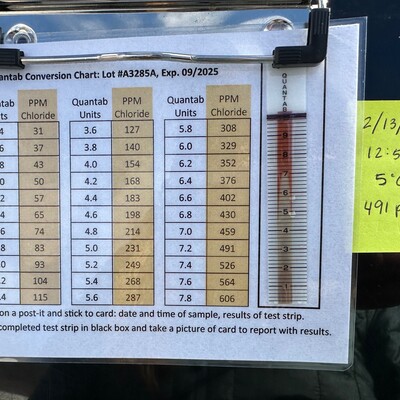 uantab Conversion Chart: Lot #A3285A, Exp. 09/2025
antab PPM Quantab PPM Quantab PPM
Units Chloride Units Chloride Units Chloride
.4 31 3.6 127 5.8 308
.6 37 3.8 140 6.0 329
.8 43 4.0 154 6.2 352
.0 50 4.2 168 6.4 376
.2 57 4.4 183 6.6 402
.4 65 4.6 198 6.8 430
.6 74 4.8 214 7.0 459
.8 83 5.0 231 7.2 491
.0 93 5.2 249 7.4 526
.2 104 5.4 268 7.6 564
.4 115 5.6 287 7.8 606
on a post-it and stick to card: date and time of sample, results of test strip.
completed test strip in black box and take a picture of card to report with results.
QUANTAB
9
8
7
6
5
4
3
2
1
2/13/
12:5
5°
491 p